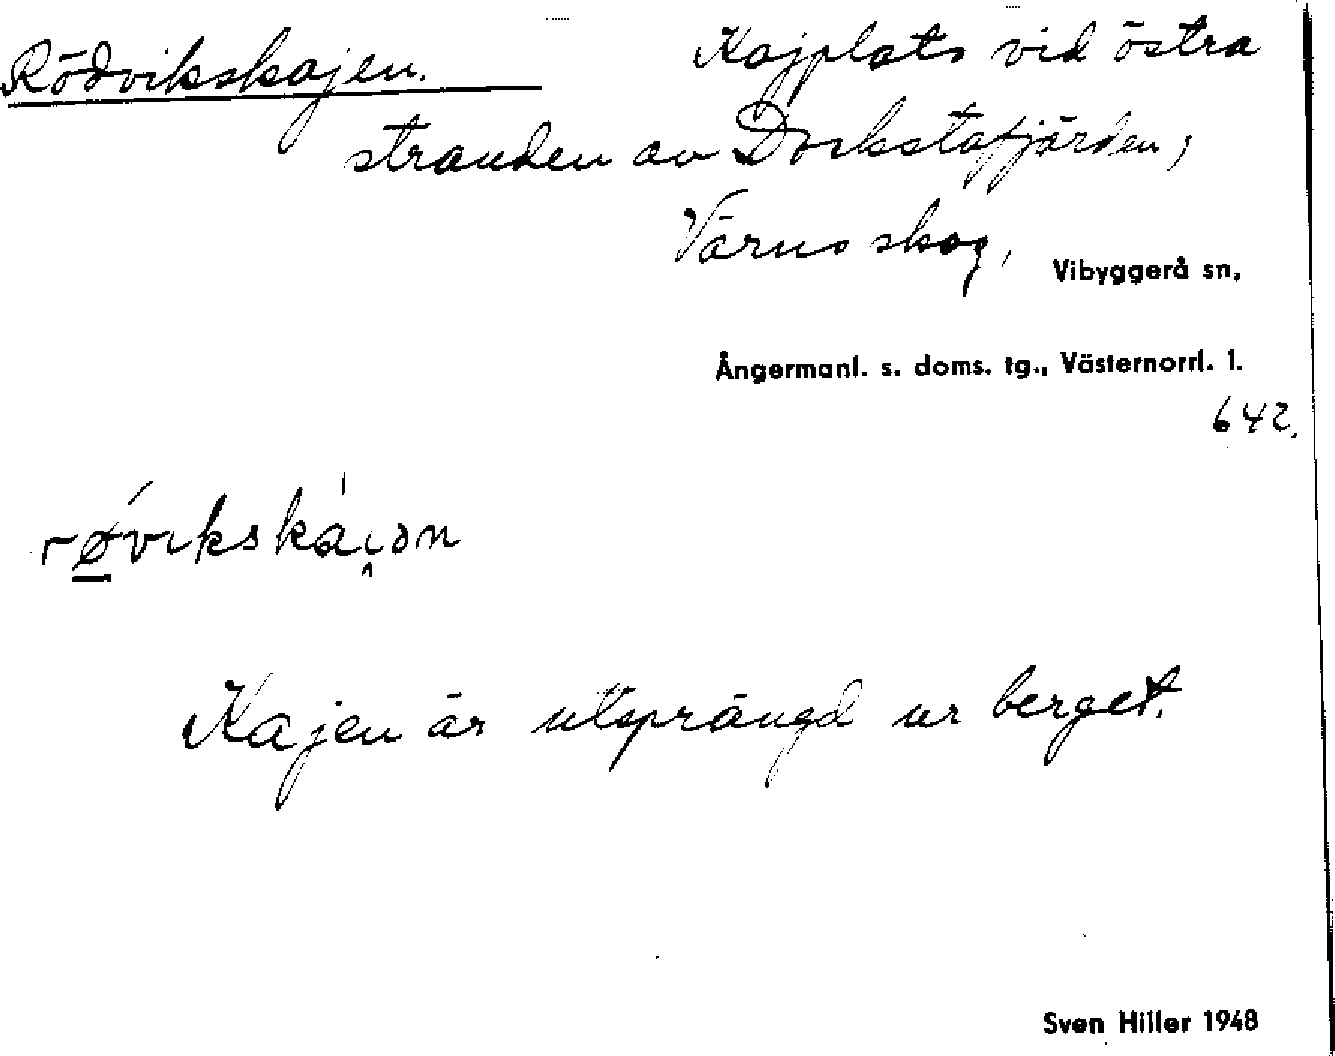 Rödvikskajen. Kajplats vid östra
stranden av Dockstafjärden,
Värns skog, Vibyggerå sn,
Ångermanl. s. doms. tg., Västernorrl. l.
642.
rǿvıkskáı̯ən
Kajen är utsprängd ur berget.
Sven Hiller 1948